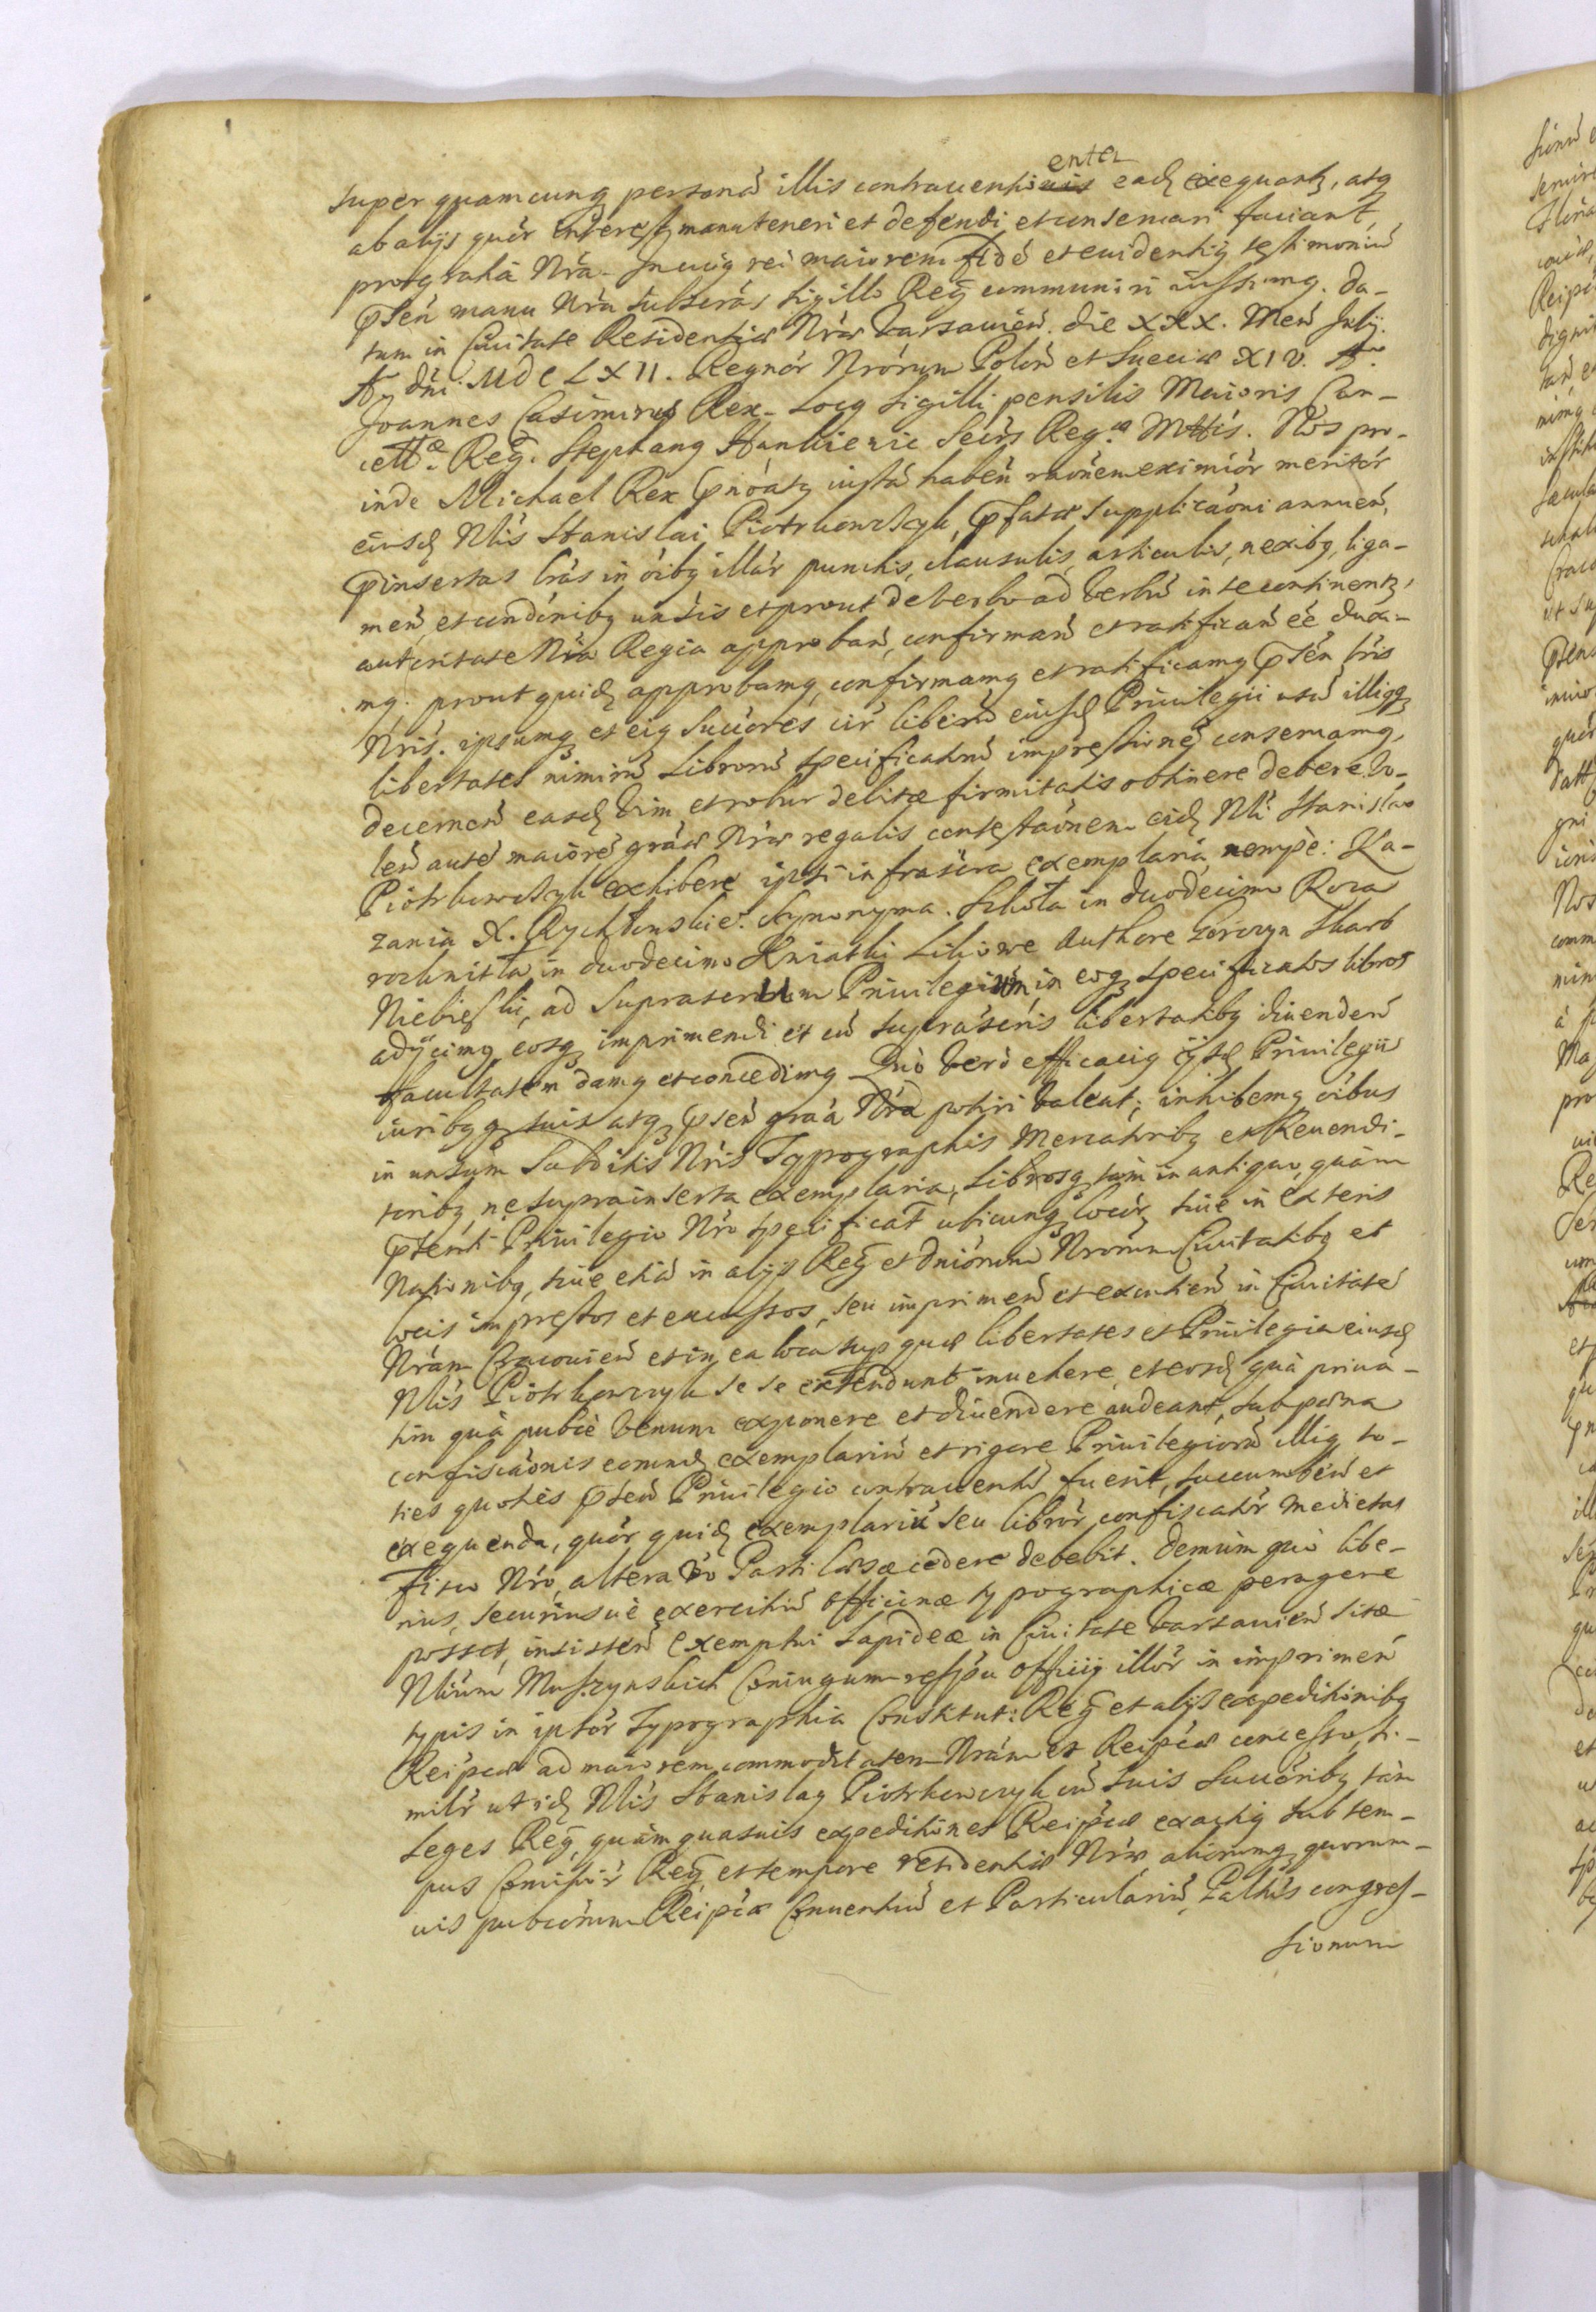 super quamcunq personā illis contrauentiuis enter eadq exequantz, atq
ab alijs quor interest manuteneri et defendi et conseruari faciant,
pro gratiā Nrā. In cuiq rei maiorem fidē et euidentiq testimoniū
psen manu Nrā subscras sigillo Reg communiri iussimq. Da-
tum in Ciuitate Residentiæ Nræ Varsauien. die XXX. Men Julij.
Aº dni MDCLXII. Regnor Nrorum Polon et Sueciæ XIV. Aº.
Joannes Casimirus Rex. Locq Sigilli pensilis Maioris Can-
cellæ Reg. Stephanq Hankiewic Secrs Regæ Mttis. Nos pro-
inde Michael Rex pnoatz iustā haben raonem eximior meritor
eiusd Nlis Stanislai Piotrkowczyk, pfatæ supplicaoni annuen,
pinsertas lras in oibq illar punctis, clausulis, articulis, nexibq, liga-
men, et condonibq unsis et prout de verbo ad verbū in se continentz,
autoritate Nra Regia approban, confirman et ratifican eē duxi-
mq. prout quidq approbamq, confirmamq et ratificamq psen lris
Nris. ipsumq et eiq succores cir liberū eiusd Priuilegii usū illiqq
libertates nimirū Librorū specificatorū impressionē conseruamq,
decernen easdq vim et robur debitæ firmitatis obtinere debere. Vo-
len autē maiorē graæ Nræ regalis contestaonem eidq Nli Stanislao
Piotrkowczyk exhibere ipsi infrascra exemplaria, nempè: Ka-
zania X. Rychłowskie. Synonyma. Szkoła in duodecimo Roza
rozkwitła in duodecimo Kwiatki Liliowe Authore Gorczyn Skarb
Niebieski, ad suprascriptum Privilegium in eoq specificatos libros
adijcimq, eosq imprimendi et cū suprascris libertatibq diuenden
facultatem damq et concedimq Quò verò efficaciq ijsd Priuilegiis
iuribqq suis atq psen graā Nrā potiri valeat; inhibemq oibus
in unsum Subditis Nris Typographis Mercatoribq et Reuendi-
toribq, ne suprainserta exemplaria, Librosq tam in antiquo, quàm
psenti Priuilegio Nro specificat ubicunq locor, siue in exteris
Nationibq, siue etiā in alijs Reg et dniorum Nrorum Ciuitatibq et
locis impressos et excussos, seu imprimen et excutien in Ciuitatē
Nram Cracouien et in ea loca sup quæ libertates et Priuilegia eiusd
Nlis Piotrkowczyk se se extendunt inuehere, et eosd quà priua-
tim quà publicè venum exponere et diuendere audeant, sub pœna
confiscaonis eorundq exemplariū et rigore Priuilegiorū illiq to-
ties quoties psen Priuilegio contrauentū fuerit, succumben et
exequenda, quor quidq exemplariū seu libror confiscator medietas
fisco Nro, altera vo Parti læsæ cedere debebit. Demùm quò libe-
rius, securiusuè exercitiū officinæ typographicæ peragere
posset, insisten exemptioni Lapideæ in Ciuitate Varsauien sitæ
Nlium Muszynskich Coniugum respectu Officiiq illor in imprimen
typis in ipsor Typographia Constitut: Reg et alijs expeditionibq
Reipcæ ad maiorem commoditatem Nram et Reipcæ concesso si-
milr ut idq Nlis Stanislaq Piotrkowczyk cū suis succoribq tam
leges Reg, quàm quasuis expeditiones Reipcæ exactiq sub tem-
pus Comitior Reg, et tempore residentiæ Nræ aliorumq quorum-
uis publicorum Reipcæ Conuentuū et Particulariū Paltis congres-
sionum